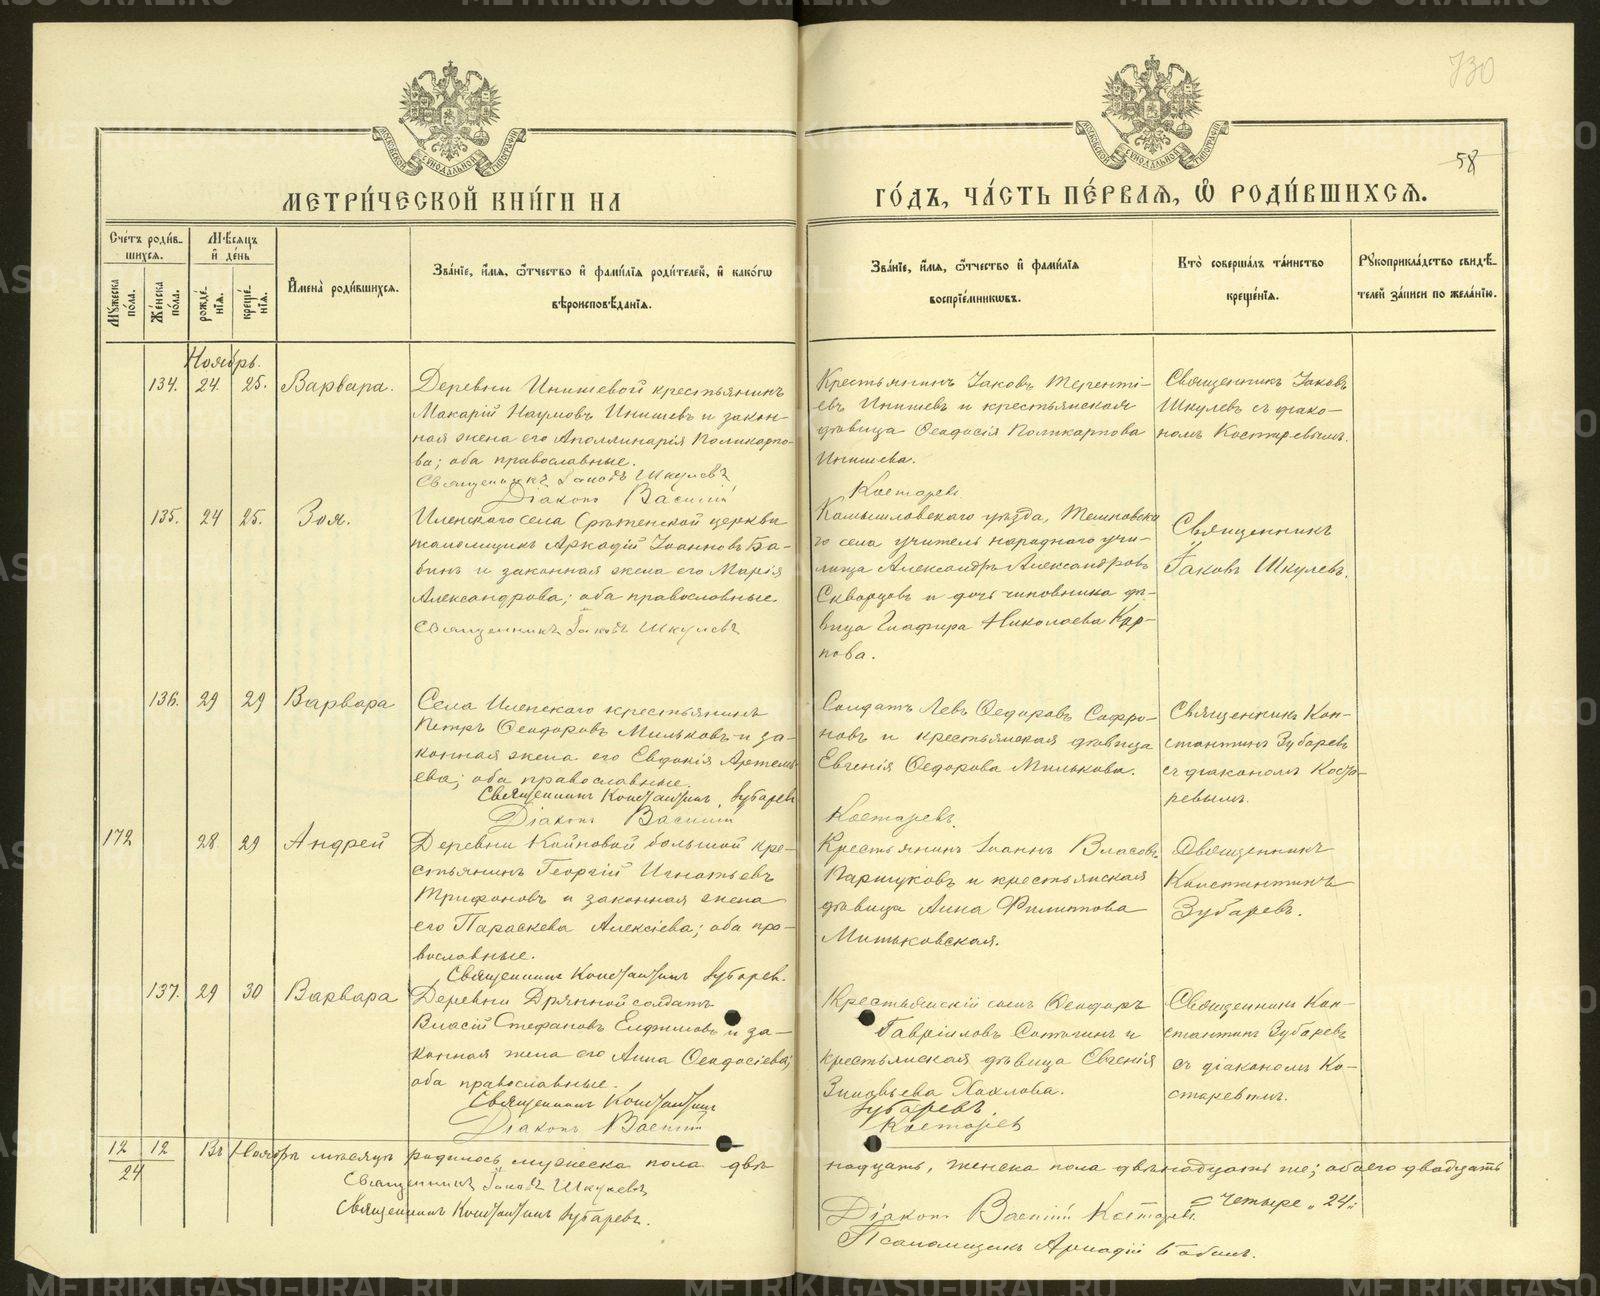 730
58
МЕТРИ́ЧЕСКОЙ КНИ́ГИ НА
ГО́ДЪ, ЧА́СТЬ ПЕ́РВАЯ, Ѡ РОДИ́ВШИХСЯ.
МОСКОВСКОЙ СѴНОДАЛЬНОЙ ТИПОГРАФІИ
МОСКОВСКОЙ СѴНОДАЛЬНОЙ ТИПОГРАФІИ
Сче́тъ роди́в-
шихся.
Мѣ́сяцъ
и҆ де́нь
Му́жеска по́ла.
Же́нска по́ла.
рожде́-нїя.
креще́-нїя.
И҆мена̀ роди́вшихся.
Зва́нїе, и҆́мя, ѻ҆́тчество и҆ фами́лїя роди́телей, и҆ како́гѡ
вѣроисповѣ́данїя.
Зва́нїе, и҆́мя, ѻ҆́тчество и҆ фами́лїя
воспрїе́мникѡвъ.
Кто̀ соверша́лъ та́инство
креще́нїя.
Рꙋкоприкла́дство свидѣ́-
телей за́писи по жела́нїю.
Ноябрь.
134. 24. 25. Варвара.
Деревни Инишевой крестьянинъ
Макарій Наумовъ Инишевъ и закон-
ная жена его Аполлинарія Поликарпо-
ва; оба православные.
Священникъ Іаковъ Шкулевъ
Діаконъ Василій
Крестьянинъ Іаковъ Теренті-
евъ Инишевъ и крестьянская
дѣвица Ѳеодосія Поликарпова
Инишева.
Костаревъ
Священникъ Іаковъ
Шкулевъ съ діако-
номъ Костаревымъ.
135. 24 25. Зоя.
Иленскаго села Срѣтенской церкви
псаломщикъ Аркадій Іоанновъ Ба-
бинъ и законная жена его Марія
Александрова; оба православные.
Священникъ Іаковъ Шкулевъ
Камышловскаго уѣзда,
го села учитель народнаго учи-
лища Александръ Александровъ
Скворцовъ и дочь чиновника дѣ-
вица Глафира Николаева Кар-
пова.
Священникъ
Іаковъ Шкулевъ.
136. 29 29 Варвара
Села Иленскаго крестьянинъ
Петръ Ѳеодоровъ Мильковъ и за-
конная жена его Евдокія Артемь-
ева; оба православные.
Священникъ Константинъ Зубаревъ
Діаконъ Василій
Солдатъ Левъ Ѳедоровъ Сафро-
новъ и крестьянская дѣвица
Евгенія Ѳедорова Милькова.
Костаревъ.
Священникъ Кон-
стантинъ Зубаревъ
съ діакономъ Коста-
ревымъ.
172 28 29 Андрей
Деревни Койновой большой кре-
стьянинъ Георгій Игнатьевъ
Трифоновъ и законная жена
его Параскева Алексіева; оба пра-
вославные.
Священникъ Константинъ Зубаревъ.
Крестьянинъ Іоаннъ Власовъ
Паршуковъ и крестьянская
дѣвица Анна Филиппова
Митьковская.
Священникъ
Константинъ
Зубаревъ.
137. 29 30 Варвара
Деревни Дрянной солдатъ
Власій Стефановъ Елфимовъ и за-
конная жена его Анна Ѳеодосіева;
оба православные.
Священникъ Константинъ
Діаконъ Василій
Крестьянскій сынъ Ѳеодоръ
Гавріиловъ и
крестьянская дѣвица Евгенія
Зиновьева Хохлова.
Зубаревъ.
Костаревъ
Священникъ Кон-
стантинъ Зубаревъ
съ діакономъ Ко-
старевымъ.
12 12 Въ Ноябрѣ мѣсяцѣ родилось мужеска пола двѣ-
надцать, женска пола двѣнадцать же; обоего двадцать
24
четыре „24„
Священникъ Іаковъ Шкулевъ
Священникъ Константинъ Зубаревъ.
Діаконъ Василій Костаревъ
Псаломщикъ Аркадій Бабинъ.
METRIKI.GASO-URAL.RU